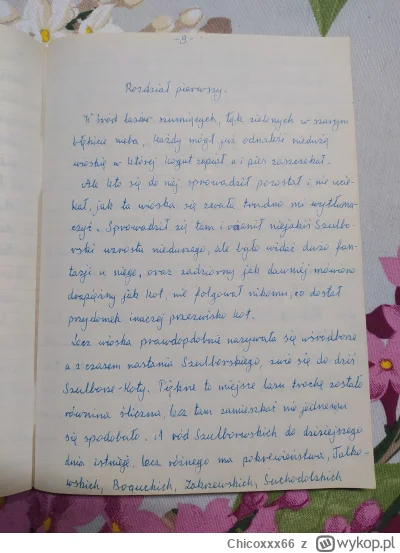 - 9 -
Rozdział pierwszy.
W śród lasów szumiących, łąk zielonych w szarym
błękicie nieba, każdy mógł już odnaleść niedużą
wioskę w której kogut zapiał a i pies zaszczekał.
Ale kto się do niej sprowadził pozostał i nie ucie-
kał, jak ta wioska się zwała trudno mi wytłoma-
czyć. Sprowadził się tam i ożenił niejakiś Szulbo-
rski wzrostu nieduzego, ale było widać dużo fan-
tazji u niego, oraz zadziorny jak dawniej mówiono
drapieżny jak kot, nie folgował nikomu, co dostał
przydomek inaczej przezwisko kot.
Lecz wioska prawdopdobnie nazywała się wśródborze
a z czasem nastania Szulborskiego, zwie się do dziś
Szulborze-Koty. Piękne to miejsce lasu trochę zostało
równina śliczna, lecz tam zamieszkać nie jednemu
się spodobało. A ród Szulborskich do dzisiejszego
dnia istnieje, lecz różnego ma pokrewieństwa, Jałko-
wskich, Boguckich, Zakrzewskich, Suchodolskich
Chicoxxx66 z wykop.pl